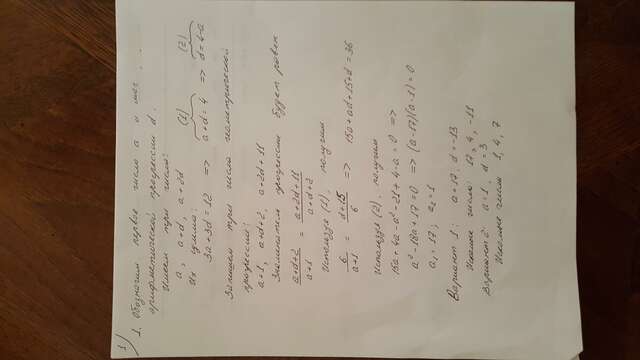 1)
1. Обозначим первое число a и шаг
арифметической прогрессии d.
Имеем три числа:
a, a+d, a+2d
Их сумма: (1) (2)
3a+3d=12 => a+d=4 => d=4-a
Запишем три числа геометрической
прогрессии:
a+1, a+d+2, a+2d+11
Знаменатель прогрессии будет равен
a+d+2 / a+1 = a+2d+11 / a+d+2
Используя (1), получим
6 / a+1 = d+15 / 6 => 15a+ad+15+d=36
Используя (2), получим
15a+4a-a²-21+4-a=0 =>
a²-18a+17=0 => (a-17)(a-1)=0
a₁=17; a₂=1
Вариант 1: a=17, d=-13
Искомые числа: 17, 4, -11
Вариант 2: a=1, d=3
Искомые числа 1, 4, 7